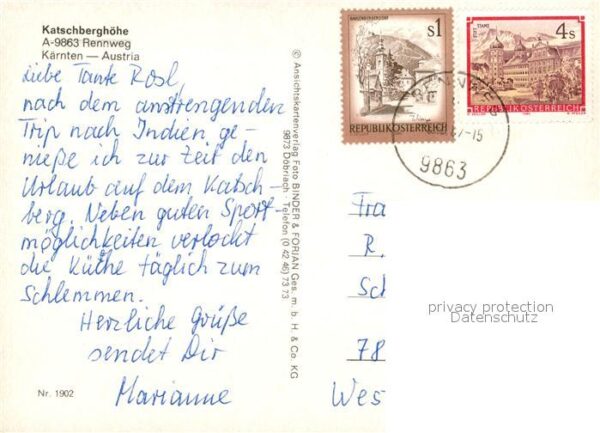 Katschberghöhe
A-9863 Rennweg
Kärnten — Austria
Liebe Tante Rosl,
nach dem anstrengenden
Trip nach Indien ge-
nieße ich zur Zeit den
Urlaub auf dem Katsch-
berg. Neben guten Sport-
möglichkeiten verlockt
die Küche täglich zum
Schlemmen.
Herzliche Grüße
sendet Dir
Marianne
Nr. 1902
© Ansichtskartenverlag Foto BINDER & FORJAN Ges. m. b. H. & Co. KG
9873 Döbriach · Telefon (0 42 46) 73 73
NAGELBERG
S1
REPUBLIK ÖSTERREICH
STIFT STAMS
4s
REPUBLIK ÖSTERREICH
-15
9863
Fra
R.
Sch
78
Wes
privacy protection
Datenschutz